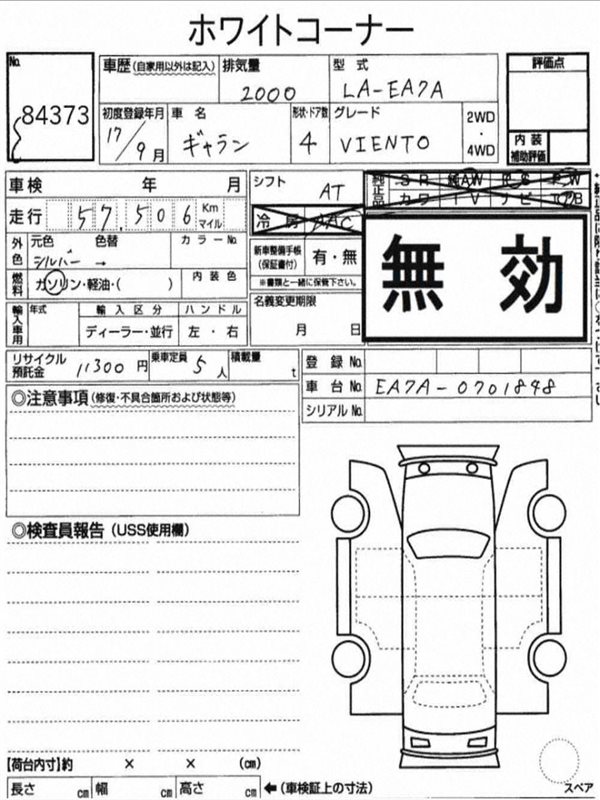 ホワイトコーナー
No. 84373
車歴(自家用以外は記入) 排気量 2000 型式 LA-EA7A 評価点
初度登録年月 17/9月 車名 ギャラン 形状・ドア数 4 グレード VIENTO 2WD・4WD
内装補助評価
車検 年 月 シフト AT
走行 57,506 Km マイル 冷房 AAC
外色 元色 シルバー 色替 → カラーNo. 新車整備手帳(保証書付) 有・無
※書類と一緒に保管下さい。
無効
燃料 ガソリン・軽油・( ) 内装色 名義変更期限 月 日
輸入車用 年式 輸入区分 ディーラー・並行 ハンドル 左・右
リサイクル預託金 11300円 乗車定員 5人 積載量 t 登録No.
車台No. EA7A-0701848
シリアルNo.
◎注意事項(修復・不具合箇所および状態等)
◎検査員報告(USS使用欄)
【荷台内寸】約 × × (cm)
長さ cm 幅 cm 高さ cm ←(車検証上の寸法) スペア